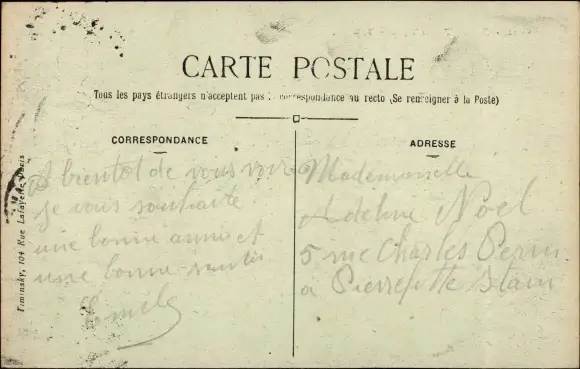 CARTE POSTALE
Tous les pays étrangers n'acceptent pas correspondance au recto (Se renseigner à la Poste)
CORRESPONDANCE
A bientot de vous voir
je vous souhaite
une bonne anné et
une bonne santé
Emile
ADRESSE
Mademoiselle
Adeline Noel
5 rue Charles Perin
a Pierrefitte Stain
Fiminsky, 104 Rue Lafayette Paris